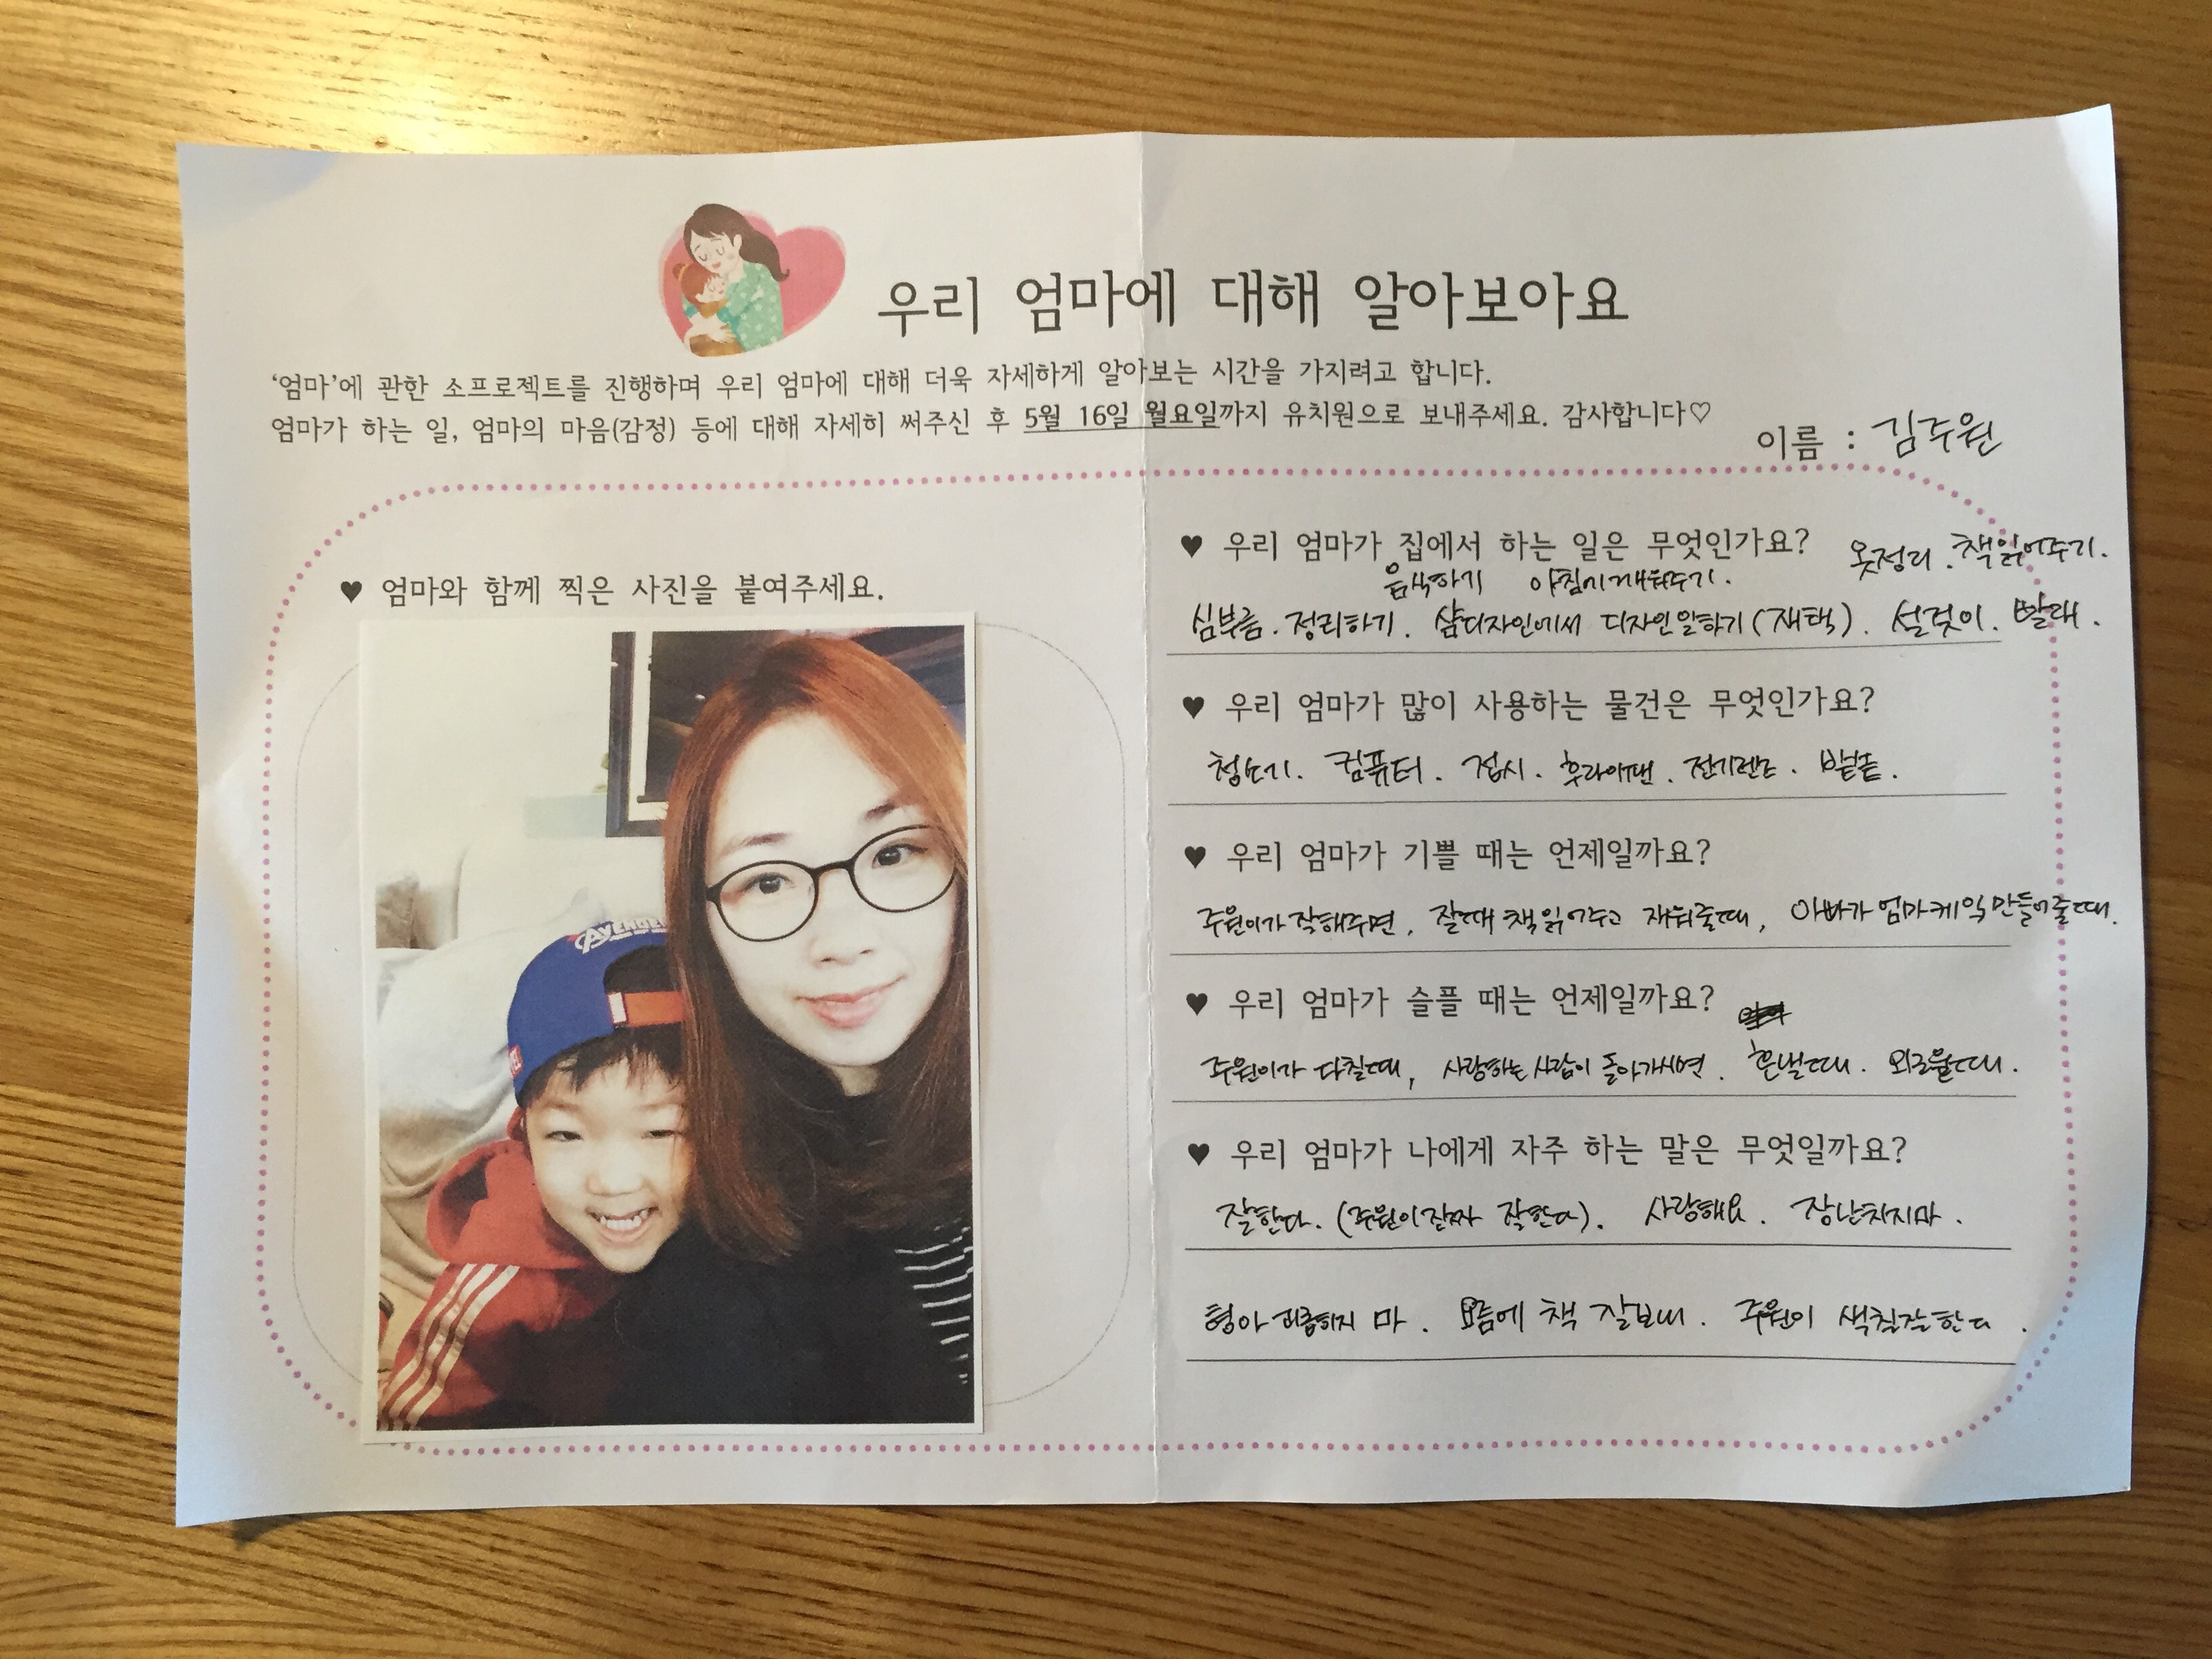 우리 엄마에 대해 알아보아요
‘엄마’에 관한 소프로젝트를 진행하며 우리 엄마에 대해 더욱 자세하게 알아보는 시간을 가지려고 합니다.
엄마가 하는 일, 엄마의 마음(감정) 등에 대해 자세히 써주신 후 5월 16일 월요일까지 유치원으로 보내주세요. 감사합니다♡
이름 : 김주원
♥ 엄마와 함께 찍은 사진을 붙여주세요.
AVENGE
♥ 우리 엄마가 집에서 하는 일은 무엇인가요? 옷정리. 책읽어주기.
음식하기 아침에깨워주기.
심부름. 정리하기. 샵디자인에서 디자인일하기(재택). 설겆이. 빨래.
♥ 우리 엄마가 많이 사용하는 물건은 무엇인가요?
청소기. 컴퓨터. 접시. 후라이팬. 전기렌즈.
♥ 우리 엄마가 기쁠 때는 언제일까요?
주원이가 잘해주면, 잘때 책읽어주고 재워줄때, 아빠가 엄마케익만들어줄때.
♥ 우리 엄마가 슬플 때는 언제일까요?
주원이가 다칠때, 사랑하는사람이 돌아가시면. 혼낼때. 외로울때.
♥ 우리 엄마가 나에게 자주 하는 말은 무엇일까요?
잘한다. (주원이진짜 잘한다). 사랑해요. 장난치지마.
형아 괴롭히지 마. 요즘에 책 잘보네. 주원이 색칠잘한다.